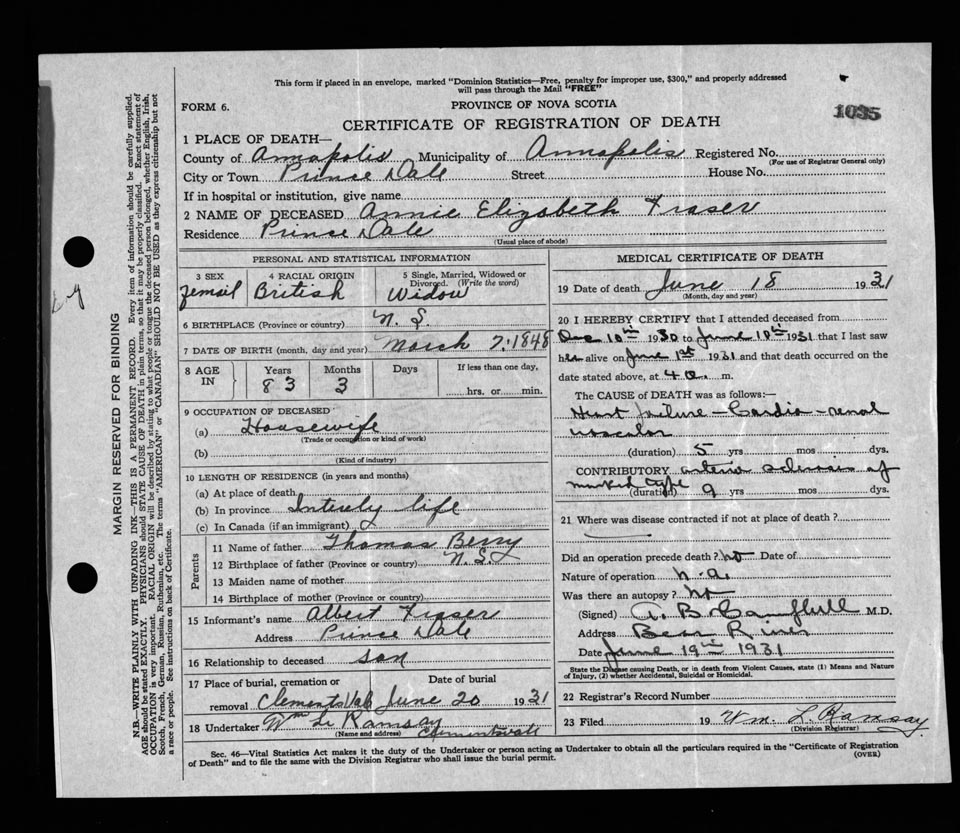 This form if placed in an envelope, marked "Dominion Statistics—Free, penalty for improper use, $300," and properly addressed
will pass through the Mail "FREE"
FORM 6.
PROVINCE OF NOVA SCOTIA
1035
CERTIFICATE OF REGISTRATION OF DEATH
1 PLACE OF DEATH—
County of Annapolis Municipality of Annapolis Registered No.
(For use of Registrar General only)
City or Town Prince Dale Street House No.
If in hospital or institution, give name
2 NAME OF DECEASED Annie Elizabeth Fraser
Residence Prince Dale
(Usual place of abode)
PERSONAL AND STATISTICAL INFORMATION
3 SEX 4 RACIAL ORIGIN 5 Single, Married, Widowed or
Divorced. (Write the word)
Femail British Widow
6 BIRTHPLACE (Province or country) N. S.
7 DATE OF BIRTH (month, day and year) March 7, 1848
8 AGE IN Years Months Days If less than one day,
83 3 hrs. or min.
9 OCCUPATION OF DECEASED
(a) Housewife
(Trade or occupation or kind of work)
(b)
(Kind of industry)
10 LENGTH OF RESIDENCE (in years and months)
(a) At place of death
(b) In province Intirely life
(c) In Canada (if an immigrant)
Parents
11 Name of father Thomas Berry
12 Birthplace of father (Province or country) N. S.
13 Maiden name of mother
14 Birthplace of mother (Province or country)
15 Informant's name Albert Fraser
Address Prince Dale
16 Relationship to deceased son
17 Place of burial, cremation or Date of burial
removal Clements Vale June 20 1931
18 Undertaker Wm L. Ramsay
(Name and address) Clementsvale
MEDICAL CERTIFICATE OF DEATH
19 Date of death June 18 1931
(Month, day and year)
20 I HEREBY CERTIFY that I attended deceased from
Dec 10th 1930 to June 18th 1931 that I last saw
her alive on June 1st 1931 and that death occurred on the
date stated above, at 4 a. m.
The CAUSE OF DEATH was as follows:—
Heart failure – Cardio-renal
vascular
(duration) 5 yrs mos dys.
CONTRIBUTORY arterio sclerosis of
marked type
(duration) 9 yrs mos dys.
21 Where was disease contracted if not at place of death?
Did an operation precede death? no Date of
Nature of operation n.a.
Was there an autopsy? no
(Signed) A. B. Campbell M.D.
Address Bear River
Date June 19th 1931
State the Disease causing Death, or in death from Violent Causes, state (1) Means and Nature
of Injury, (2) whether Accidental, Suicidal or Homicidal.
22 Registrar's Record Number
23 Filed 19 Wm. L. Ramsay
(Division Registrar)
Sec. 46—Vital Statistics Act makes it the duty of the Undertaker or person acting as Undertaker to obtain all the particulars required in the "Certificate of Registration
of Death" and to file the same with the Division Registrar who shall issue the burial permit.
(OVER)
MARGIN RESERVED FOR BINDING
N.B.—WRITE PLAINLY WITH UNFADING INK—THIS IS A PERMANENT RECORD. Every item of information should be carefully supplied.
AGE should be stated EXACTLY. PHYSICIANS should STATE CAUSE OF DEATH in plain terms, so that it may be properly classified. Exact statement of
OCCUPATION is very important. RACIAL ORIGIN will be described by stating to what people or tongue the deceased person belonged, whether English, Irish,
Scotch, French, German, Russian, Ruthenian, etc. The terms "AMERICAN" or "CANADIAN" SHOULD NOT BE USED as they express citizenship but not
a race or people. See instructions on back of Certificate.